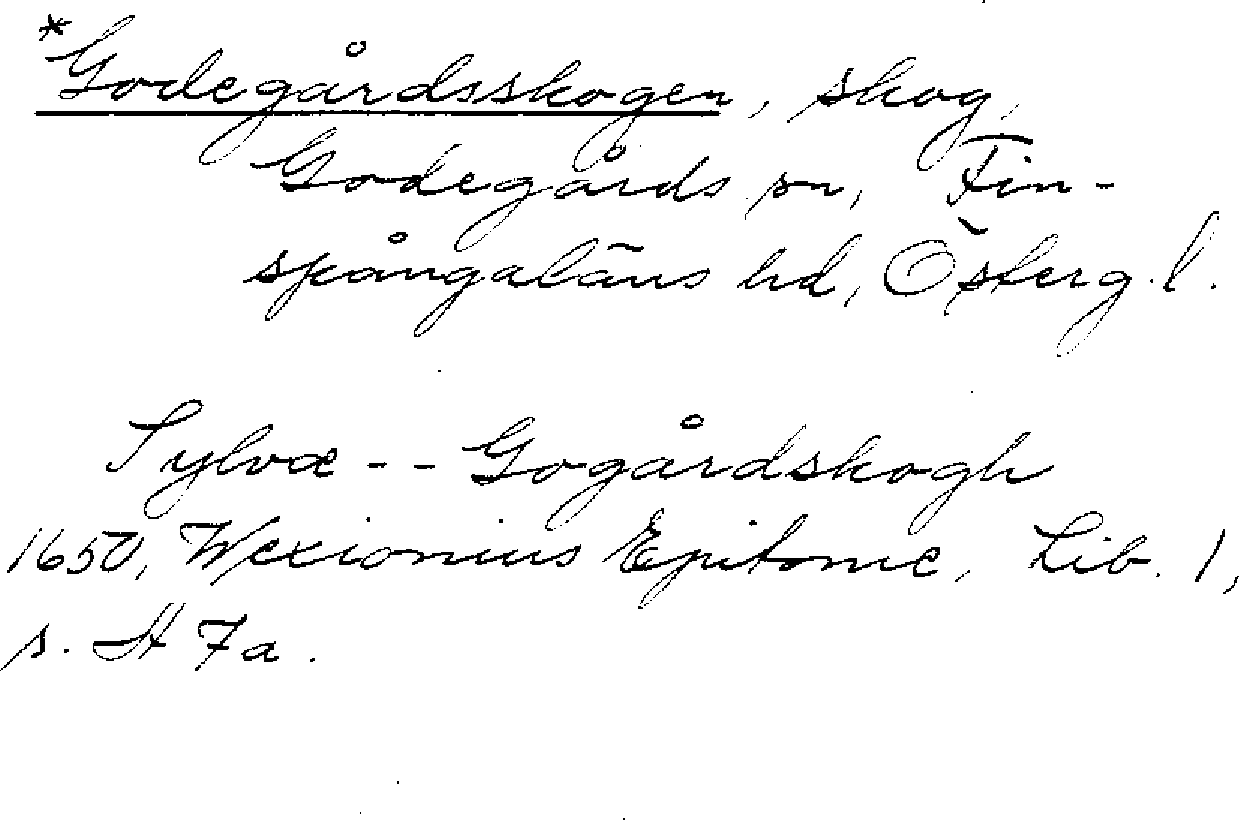 *Godegårdsskogen, skog,
Godegårds sn, Fin-
spångaläns hd, Österg. l.
Sylvæ -- Gogårdskogh
1650, Wexionius Epitome, Lib. 1,
s. H 7a.